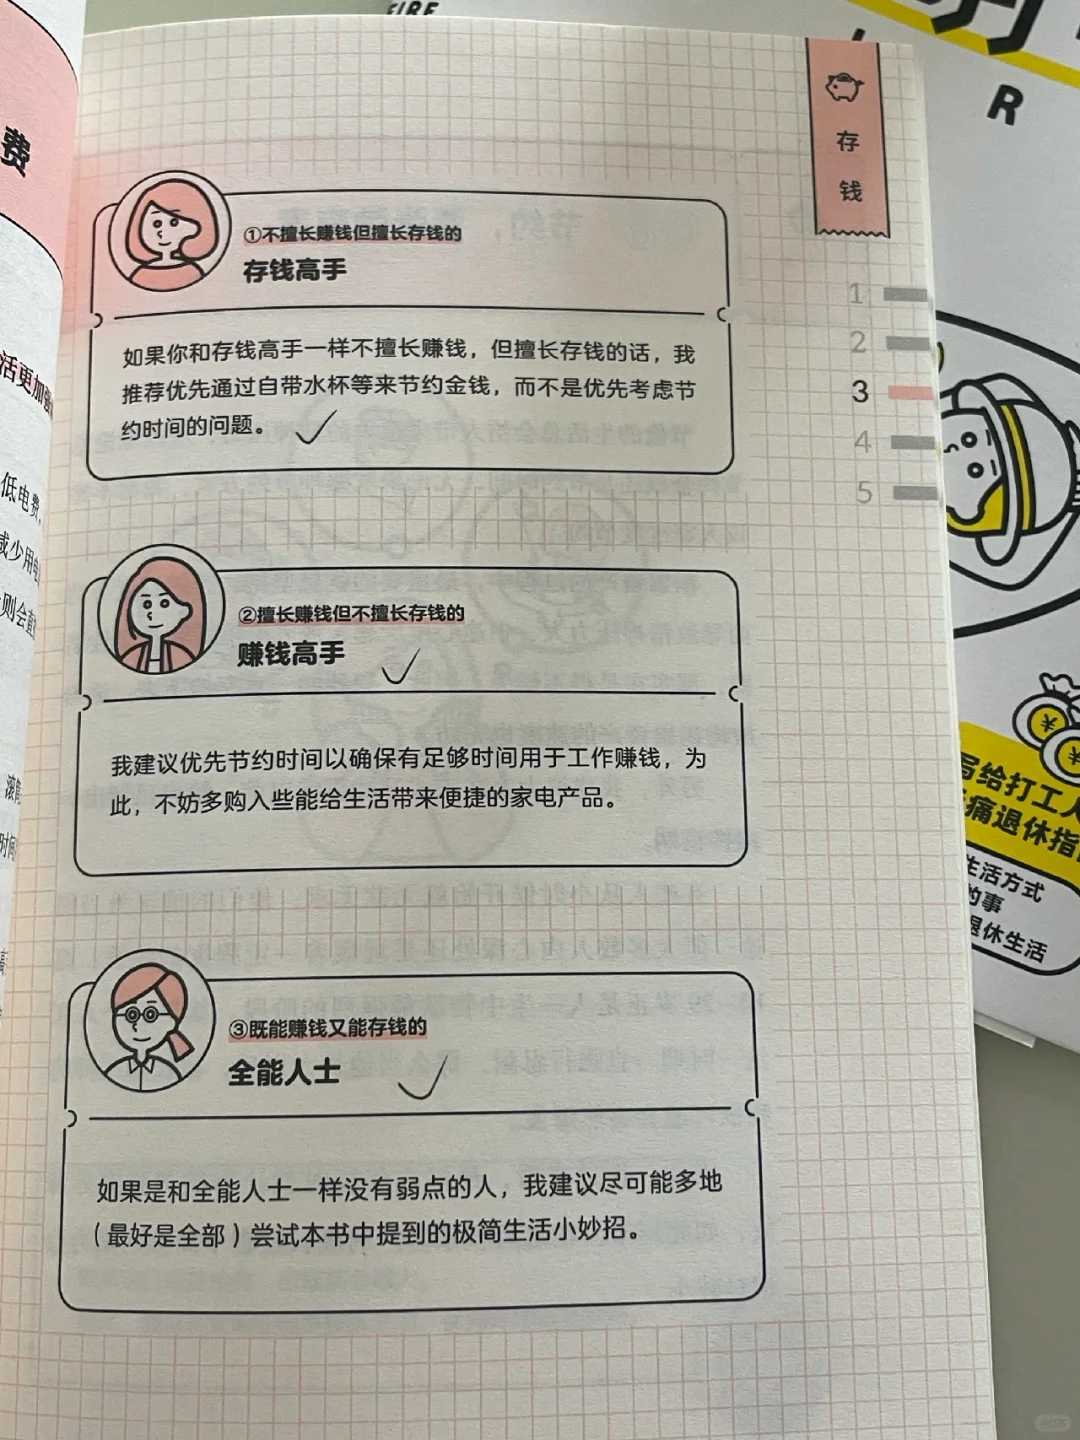 FIRE
R
费
存
钱
①不擅长赚钱但擅长存钱的
存钱高手
如果你和存钱高手一样不擅长赚钱，但擅长存钱的话，我
推荐优先通过自带水杯等来节约金钱，而不是优先考虑节
约时间的问题。
1
2
3
4
5
活更加
低电费，
减少用电
则会直
②擅长赚钱但不擅长存钱的
赚钱高手
我建议优先节约时间以确保有足够时间用于工作赚钱，为
此，不妨多购入些能给生活带来便捷的家电产品。
滚筒
时间
③既能赚钱又能存钱的
全能人士
如果是和全能人士一样没有弱点的人，我建议尽可能多地
（最好是全部）尝试本书中提到的极简生活小妙招。
写给打工人
痛退休指
生活方式
的事
退休生活